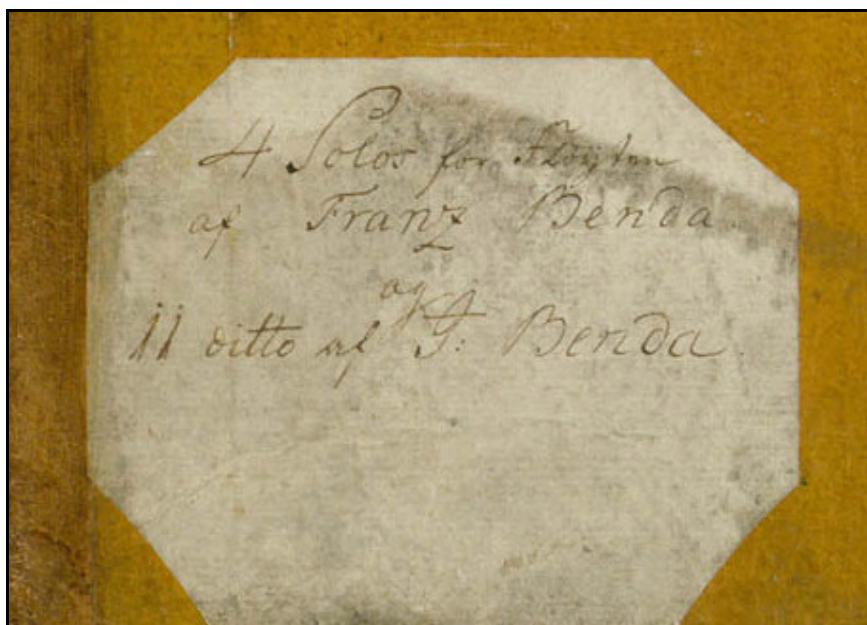 4 Solos for Fløyten
af Franz Benda.
og
11 ditto af J: Benda.